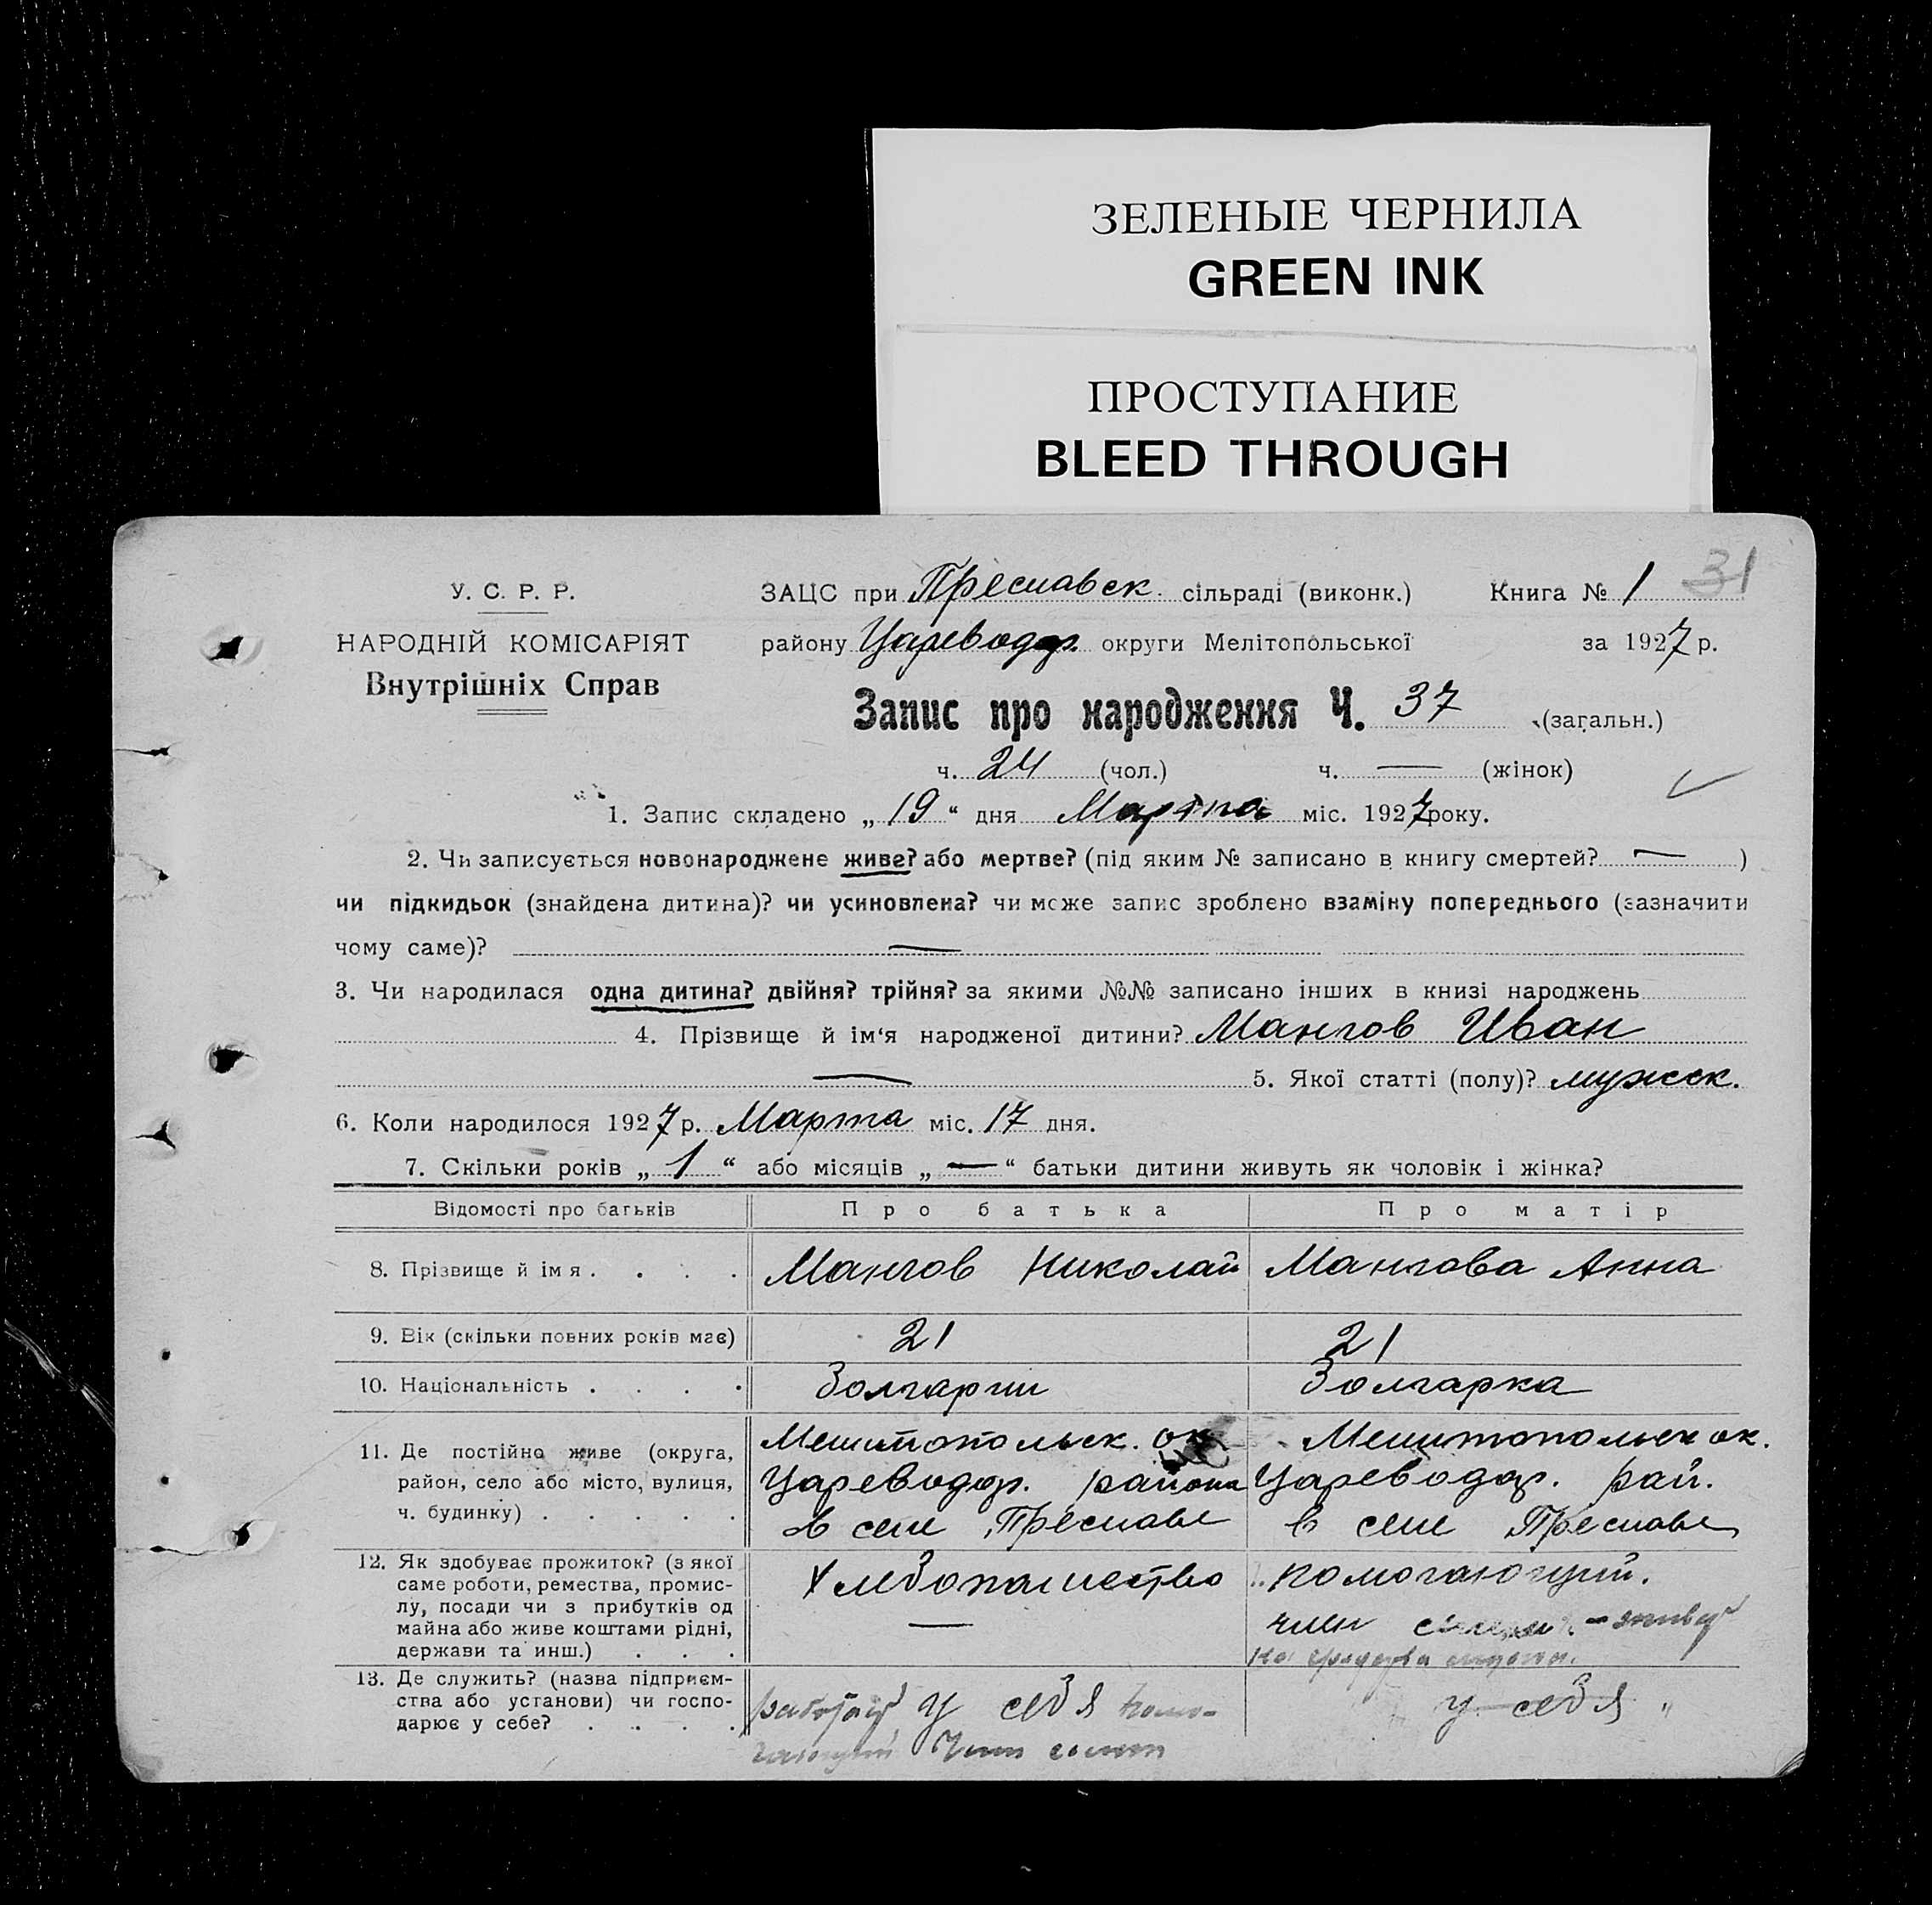 ЗЕЛЕНЫЕ ЧЕРНИЛА
GREEN INK
ПРОСТУПАНИЕ
BLEED THROUGH
У. С. Р. Р. ЗАЦС при Преславск. сільраді (виконк.) Книга № 1 31
НАРОДНІЙ КОМІСАРІЯТ району Цареводар. округи Мелітопольської за 1927 р.
Внутрішніх Справ
Запис про народження Ч. 37 (загальн.)
ч. 24 (чол.) ч. — (жінок)
1. Запис складено „19“ дня Марта міс. 1927 року.
2. Чи записується новонароджене живе? або мертве? (під яким № записано в книгу смертей? — )
чи підкидьок (знайдена дитина)? чи усиновлена? чи може запис зроблено взаміну попереднього (зазначити
чому саме)? —
3. Чи народилася одна дитина? двійня? трійня? за якими №№ записано інших в книзі народжень
4. Прізвище й ім‘я народженої дитини? Мангов Иван
— 5. Якої статті (полу)? мужск.
6. Коли народилося 1927 р. Марта міс. 17 дня.
7. Скільки років „1“ або місяців „—“ батьки дитини живуть як чоловік і жінка?
Відомості про батьків Про батька Про матір
8. Прізвище й імя . . . . Мангов Николай Мангова Анна
9. Вік (скільки повних років має) 21 21
10. Національність . . . . Болгарин Болгарка
11. Де постійно живе (округа, Мелитопольск. ок. Мелитопольск ок.
район, село або місто, вулиця, Цареводар. района Цареводар. рай.
ч. будинку) . . . . . в селе Преславе в селе Преславе
12. Як здобуває прожиток? (з якої
саме роботи, ремества, промис- Хлебопашество помогающий.
лу, посади чи з прибутків од
майна або живе коштами рідні, — член
держави та инш.) . . . на
13. Де служить? (назва підприєм-
ства або установи) чи госпо- у себя у себя "
дарює у себе? . . . .